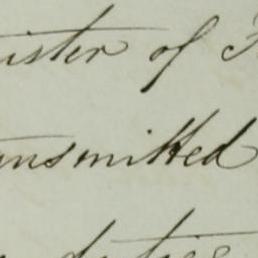 ister of
ansmitted
duties